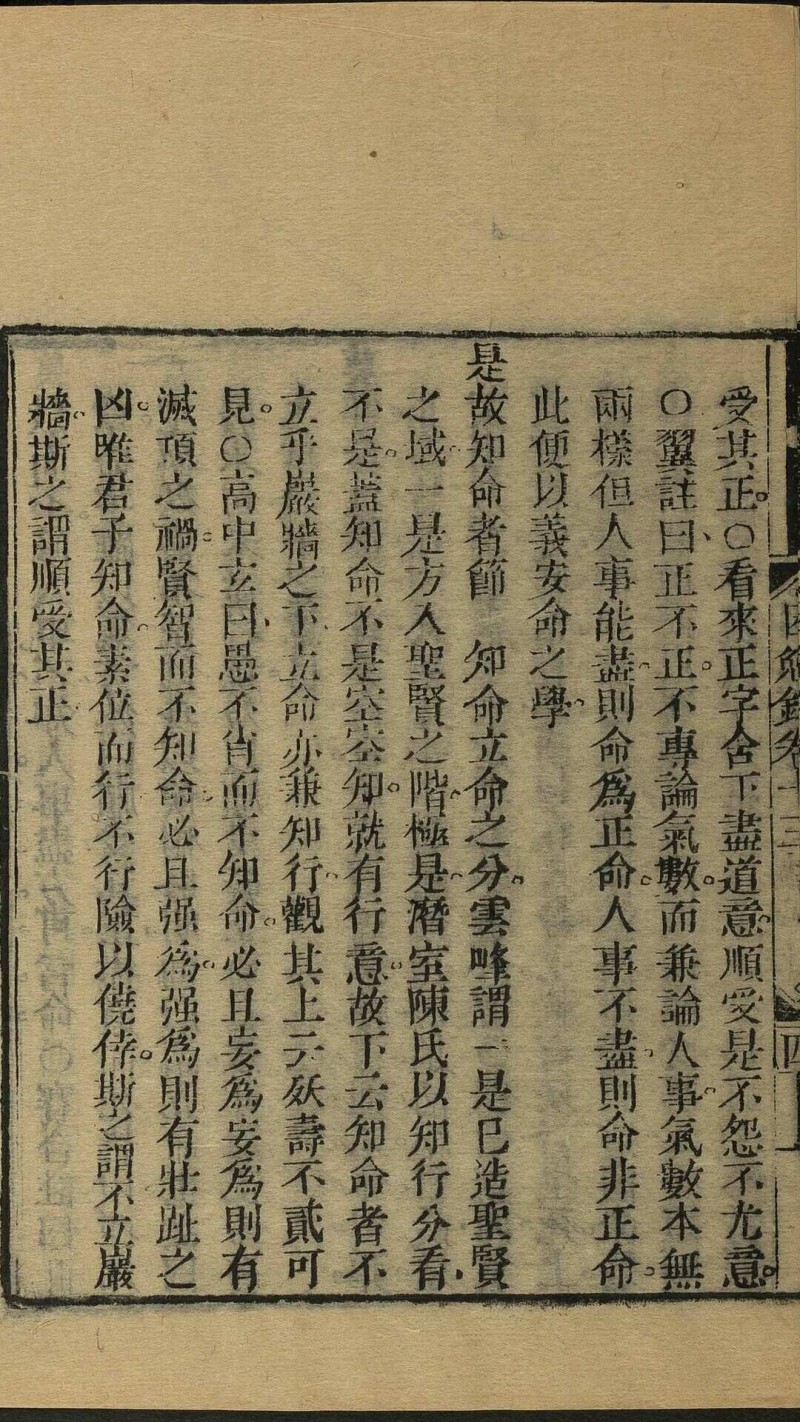 困勉錄卷十三
四
受其正。〇看來正字舍下盡道意順受是不怨不尤意。
〇翼註曰、正不正。不專論氣數。而兼論人事。氣數本無
兩樣但人事能盡。則命爲正命。人事不盡。則命非正命。
此便以義安命之學。
是故知命者節　知命立命之分。雲峰謂一是已造聖賢
之域。一是方入聖賢之階。極是。潛室陳氏以知行分看。
不是。蓋知命不是空空知。就有行意。故下云知命者不
立乎巖牆之下立命亦兼知行。觀其上云殀壽不貳可
見。〇高中玄曰、愚不肖而不知命。必且妄爲妄爲則有
滅頂之禍。賢智而不知命。必且强爲。强爲則有壯趾之
凶。唯君子知命。素位而行不行險以僥倖。斯之謂不立巖
牆。斯之謂順受其正